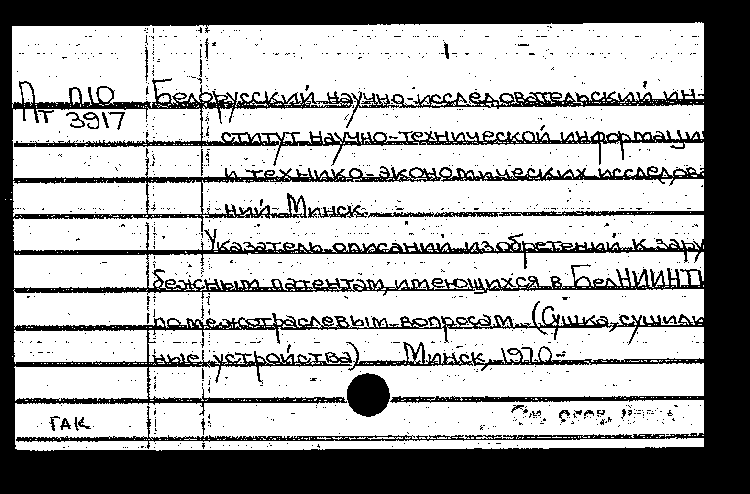 Пт П10 Белорусский научно-исследовательский ин-
3917
ститут научно-технической информации
и технико-экономических исследова
ний. Минск.
Указатель описаний изобретений к зару
бежным патентам, имеющихся в БелНИИНТИ
по межотраслевым вопросам. (Сушка, сушиль
ные устройства) Минск, 1970-
ГАК